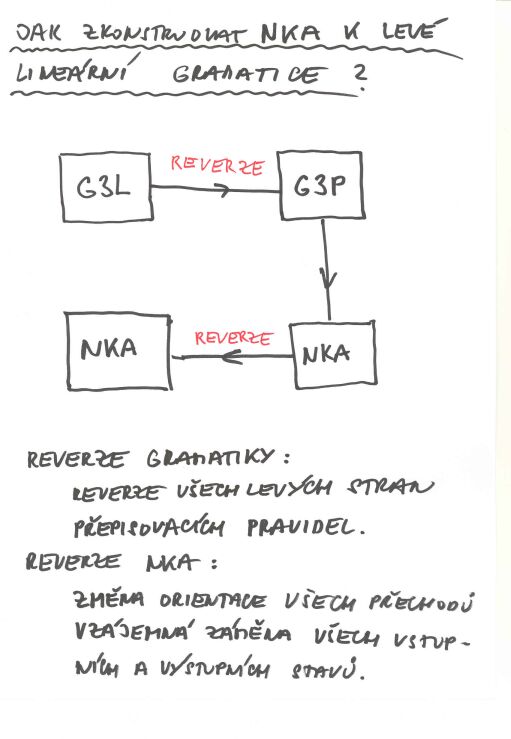 JAK ZKONSTRUOVAT NKA K LEVÉ
LINEÁRNÍ GRAMATICE ?
REVERZE
G3L
G3P
REVERZE
NKA
NKA
REVERZE GRAMATIKY :
REVERZE VŠECH LEVÝCH STRAN
PŘEPISOVACÍCH PRAVIDEL.
REVERZE NKA :
ZMĚNA ORIENTACE VŠECH PŘECHODŮ
VZÁJEMNÁ ZÁMĚNA VŠECH VSTUP-
NÍCH A VÝSTUPNÍCH STAVŮ.